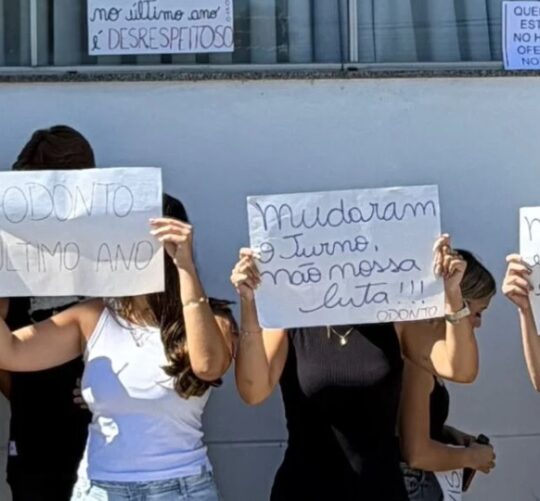 no último ano
é DESRESPEITOSO
QUE
EST
NO H
OFE
NO
ODONTO
ÚLTIMO ANO
Mudaram
o Turno,
não nossa
luta!!!
ODONTO